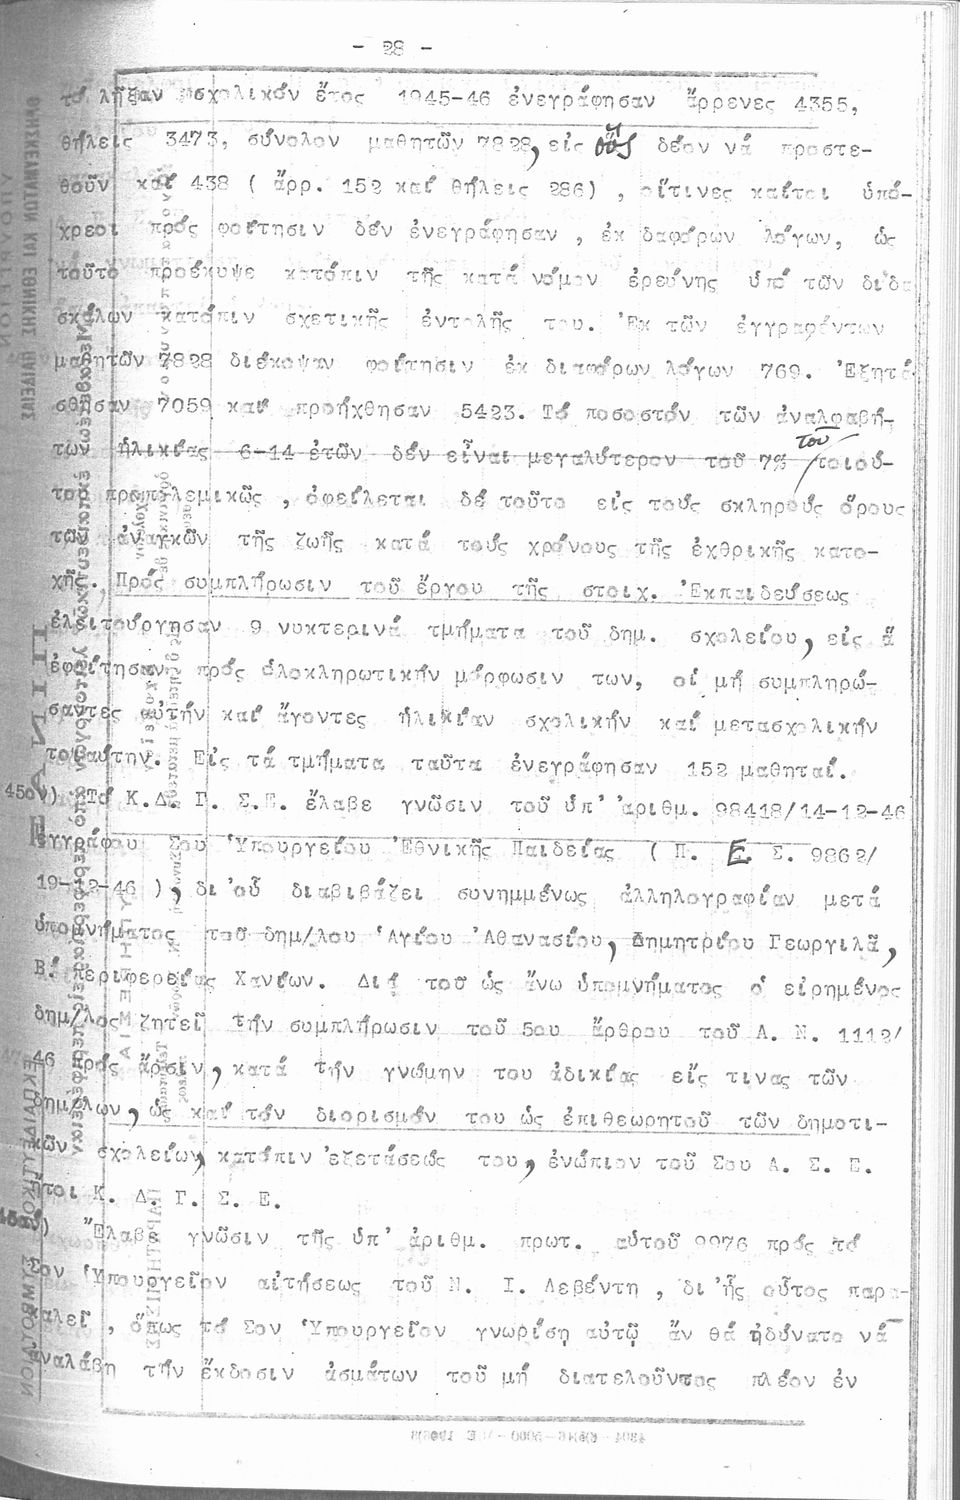 - 28 -
τό λῆξαν σχολικόν ἔτος 1945-46 ἐνεγράφησαν ἄρρενες 4355,
θήλεις 3473, σύνολον μαθητῶν 7828, εἰς οὕς δέον νά προστε-
θοῦν καί 438 ( ἄρρ. 152 καί θήλεις 286) , οἵτινες καίτοι ὑπό-
χρεοι πρός φοίτησιν δέν ἐνεγράφησαν , ἐκ δαφόρων λόγων, ὡς
τοῦτο προέκυψε κατόπιν τῆς κατά νόμον ἐρεύνης ὑπό τῶν διδα
σκάλων κατόπιν σχετικῆς ἐντολῆς του. Ἐκ τῶν ἐγγραφέντων
μαθητῶν 7828 διέκοψαν φοίτησιν ἐκ διαφόρων λόγων 769. Ἐξητά-
σθησαν 7059 καί προήχθησαν 5423. Τό ποσοστόν τῶν ἀναλφαβή-
των ἡλικίας 6-14 ἐτῶν δέν εἶναι μεγαλύτερον τοῦ 7% τοῦ τοιού-
του προπολεμικῶς , ὀφείλεται δέ τοῦτο εἰς τούς σκληρούς ὅρους
τῶν ἀναγκῶν τῆς ζωῆς κατά τούς χρόνους τῆς ἐχθρικῆς κατο-
χῆς. Πρός συμπλήρωσιν τοῦ ἔργου τῆς στοιχ. Ἐκπαιδεύσεως
ἐλειτούργησαν 9 νυκτερινά τμήματα τοῦ δημ. σχολείου, εἰς ἅ
ἐφοίτησαν πρός ὁλοκληρωτικήν μόρφωσιν των, οἱ μή συμπληρώ-
σαντες αὐτήν καί ἄγοντες ἡλικίαν σχολικήν καί μετασχολικήν
τοιαύτην. Εἰς τά τμήματα ταῦτα ἐνεγράφησαν 152 μαθηταί.
45ον) Τό Κ.Δ. Γ. Σ.Ε. ἔλαβε γνῶσιν τοῦ ὑπ' ἀριθμ. 98418/14-12-46
ἐγγράφου Σου Ὑπουργείου Ἐθνικῆς Παιδείας ( Π. Ε. Σ. 9862/
19-12-46 ), δι 'οὗ διαβιβάζει συνημμένως ἀλληλογραφίαν μετά
ὑπομνήματος τοῦ δημ/λου Ἁγίου Ἀθανασίου, Δημητρίου Γεωργιλᾶ,
Β. περιφερείας Χανίων. Διά τοῦ ὡς ἄνω ὑπομνήματος ὁ εἰρημένος
δημ/λος ζητεῖ τήν συμπλήρωσιν τοῦ 5ου ἄρθρου τοῦ Α. Ν. 1112/
46 πρός ἄρσιν, κατά τήν γνώμην του ἀδικίας εἴς τινας τῶν
δημ/λων, ὡς καί τόν διορισμόν του ὡς ἐπιθεωρητοῦ τῶν δημοτι-
κῶν σχολείων, κατόπιν ἐξετάσεώς του, ἐνώπιον τοῦ Σου Α. Σ. Ε.
ἤτοι Κ. Δ. Γ. Σ. Ε.
Ἔλαβε γνῶσιν τῆς ὑπ' ἀριθμ. πρωτ. αὐτοῦ 9976 πρός τό
Σον Ὑπουργεῖον αἰτήσεως τοῦ Ν. Ι. Λεβέντη , δι 'ἧς οὗτος παρα-
καλεῖ , ὅπως τό Σον Ὑπουργεῖον γνωρίσῃ αὐτῷ ἄν θά ἠδύνατο νά
ἀναλάβῃ τήν ἔκδοσιν ᾀσμάτων τοῦ μή διατελοῦντος πλέον ἐν